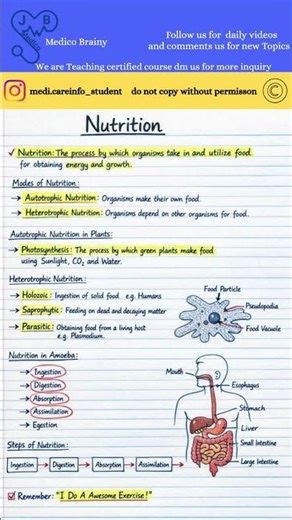 J B
Medico Brainy
Follow us for daily videos
and comments us for new Topics
We are Teaching certified course dm us for more inquiry
medi.careinfo_student do not copy without permisson ©
Nutrition
✓ Nutrition: The process by which organisms take in and utilize food
for obtaining energy and growth.
Modes of Nutrition:
→ Autotrophic Nutrition: Organisms make their own food.
→ Heterotrophic Nutrition: Organisms depend on other organisms for food.
Autotrophic Nutrition in Plants:
→ Photosynthesis: The process by which green plants make food
using Sunlight, CO₂ and Water.
Heterotrophic Nutrition:
→ Holozoic: Ingestion of solid food e.g. Humans
→ Saprophytic: Feeding on dead and decaying matter
→ Parasitic: Obtaining food from a living host
e.g. Plasmodium.
Food Particle
Pseudopodia
Food Vacuole
Nutrition in Amoeba:
→ Ingestion
→ Digestion
→ Absorption
→ Assimilation
→ Egestion
Mouth
Esophagus
Stomach
Liver
Small Intestine
Large Intestine
Steps of Nutrition:
Ingestion → Digestion → Absorption → Assimilation →
Remember: "I Do A Awesome Exercise!"